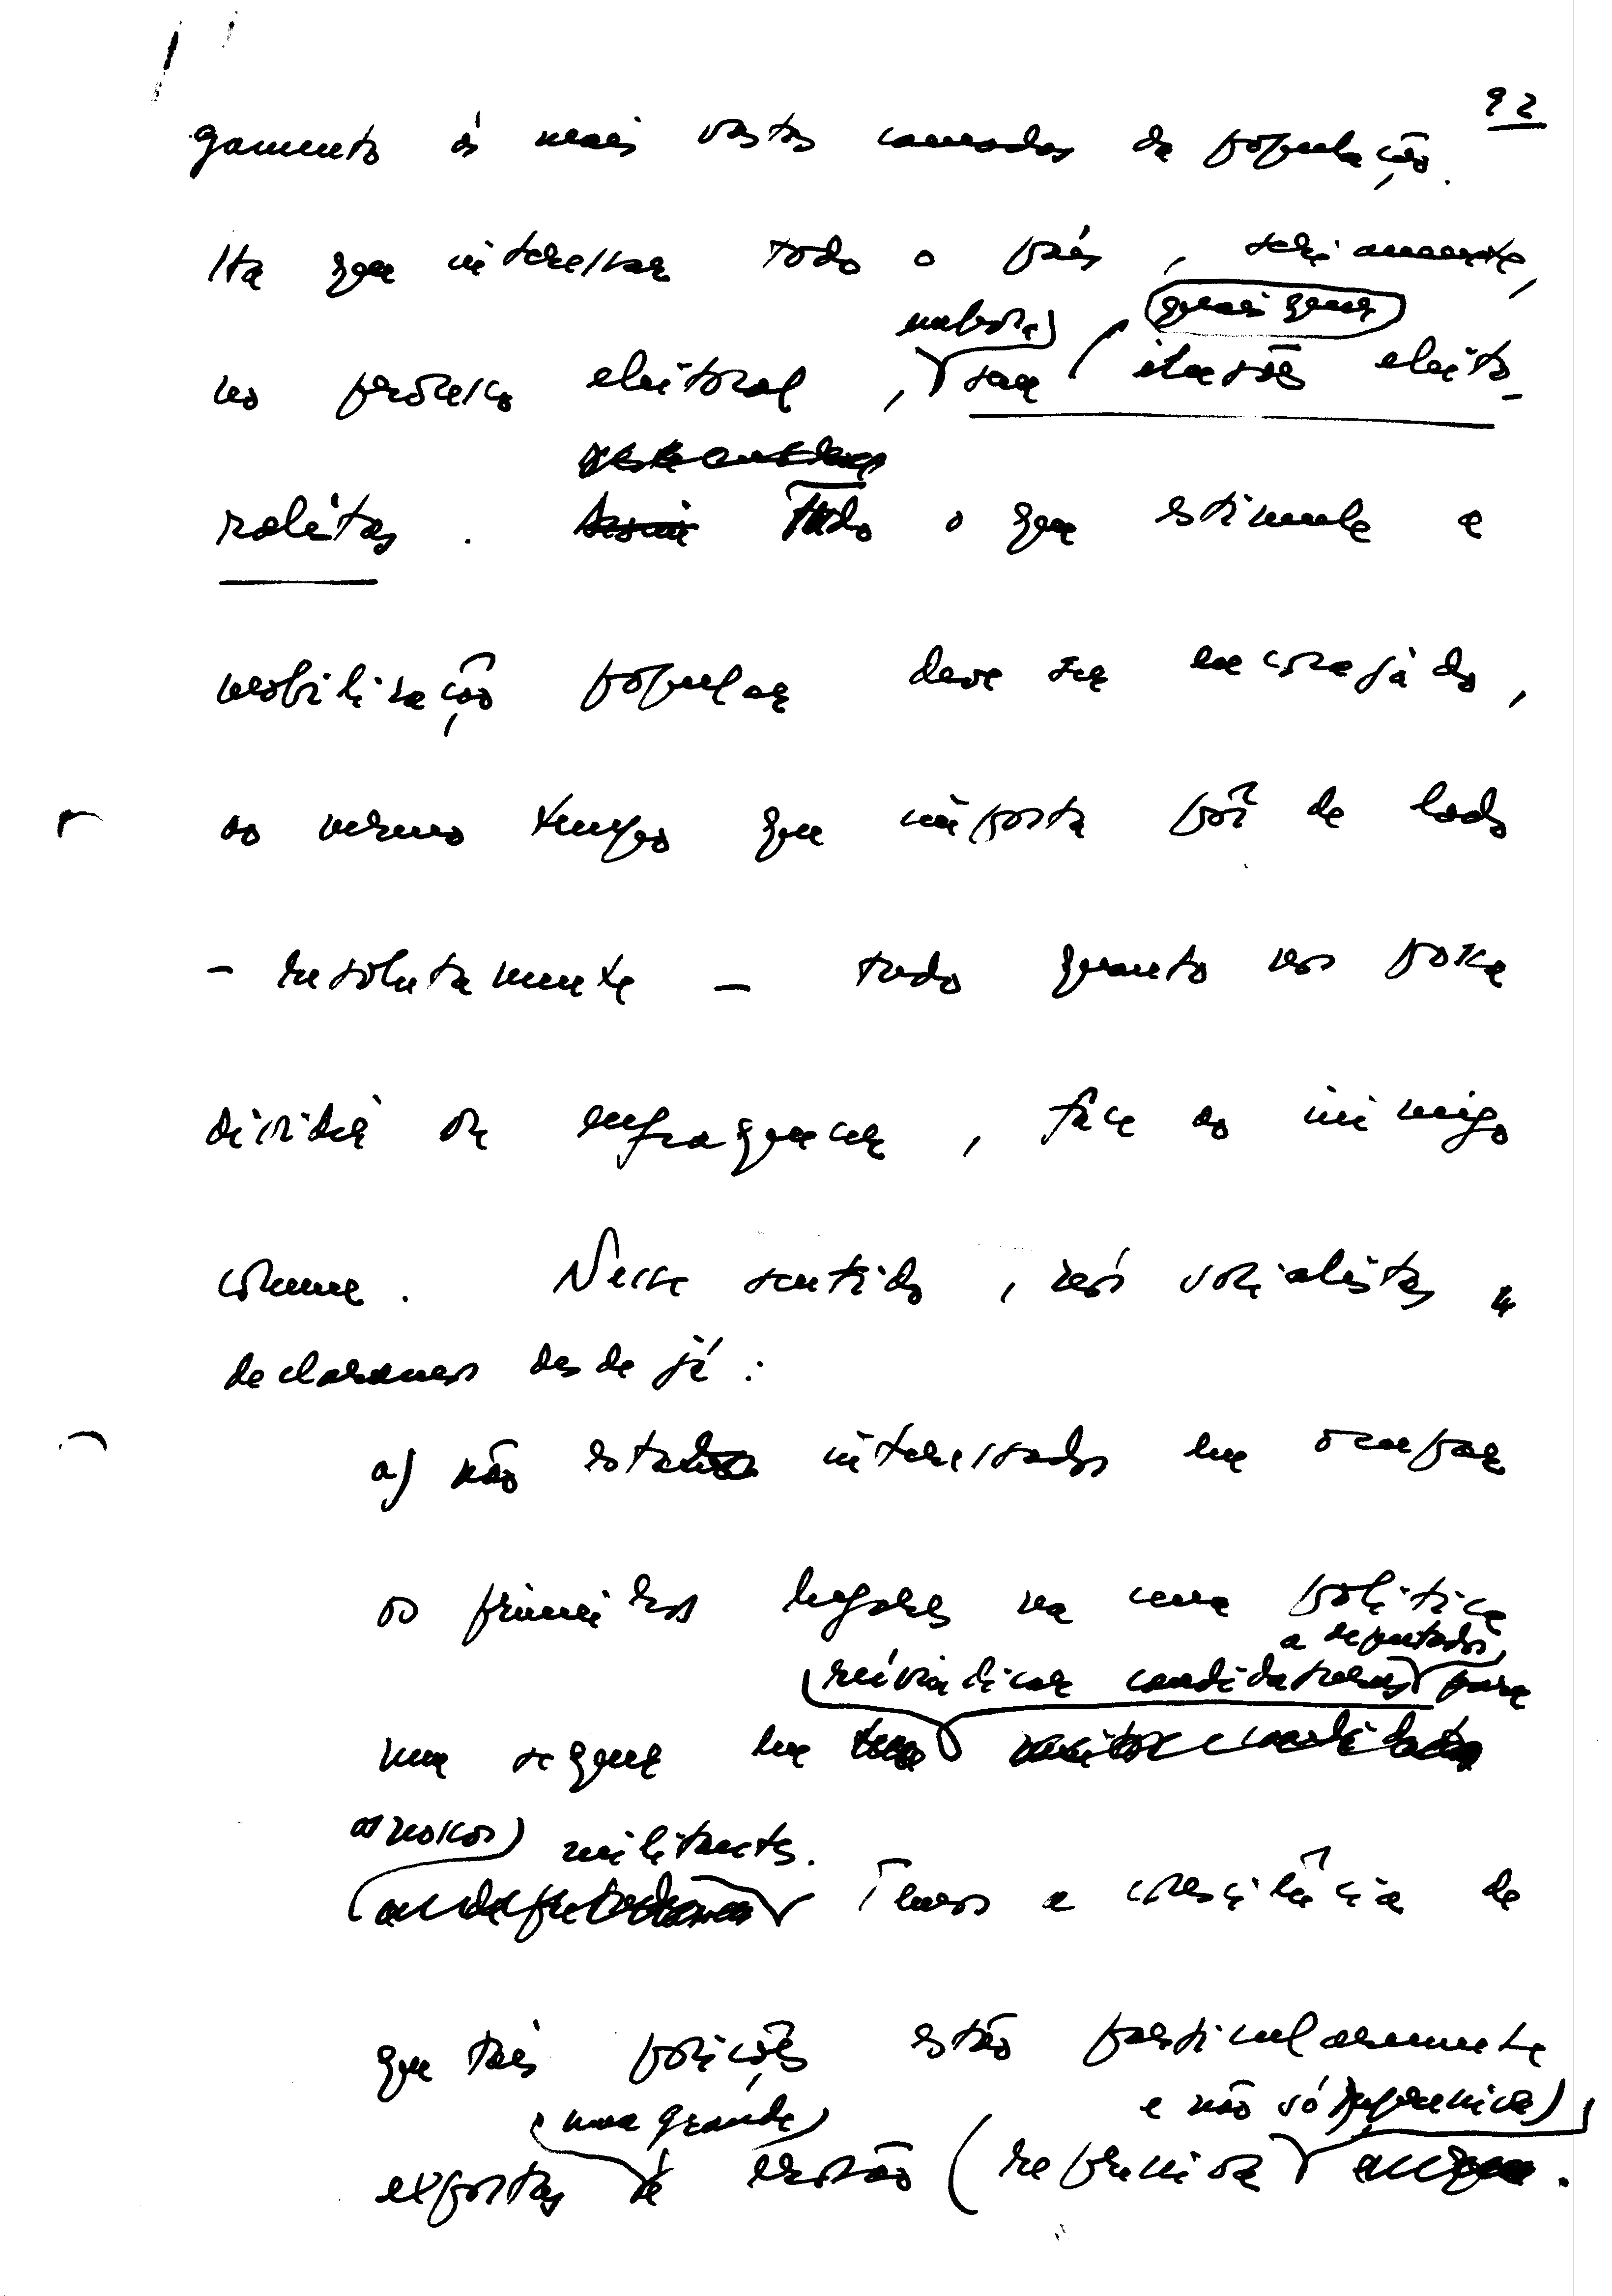 92
gamento às mais vastas camadas da população.
Há que interessar todo o país, seriamente,
no processo eleitoral, embora sem quaisquer ilusões eleito-
ralistas. Tudo o que estimule a
mobilização popular deve ser encorajado,
ao mesmo tempo que importa pôr de lado
- resolutamente - tudo quanto nos possa
dividir ou enfraquecer, face ao inimigo
comum. Nesse sentido, nós socialistas
declaramos desde já:
a) não estamos interessados em ocupar
os primeiros lugares na cena política
nem sequer em reivindicar candidaturas a deputados para
os nossos militantes. Temos a consciência de
que tais posições estão particularmente
expostas a uma grande erosão (repressiva e não só repressiva).